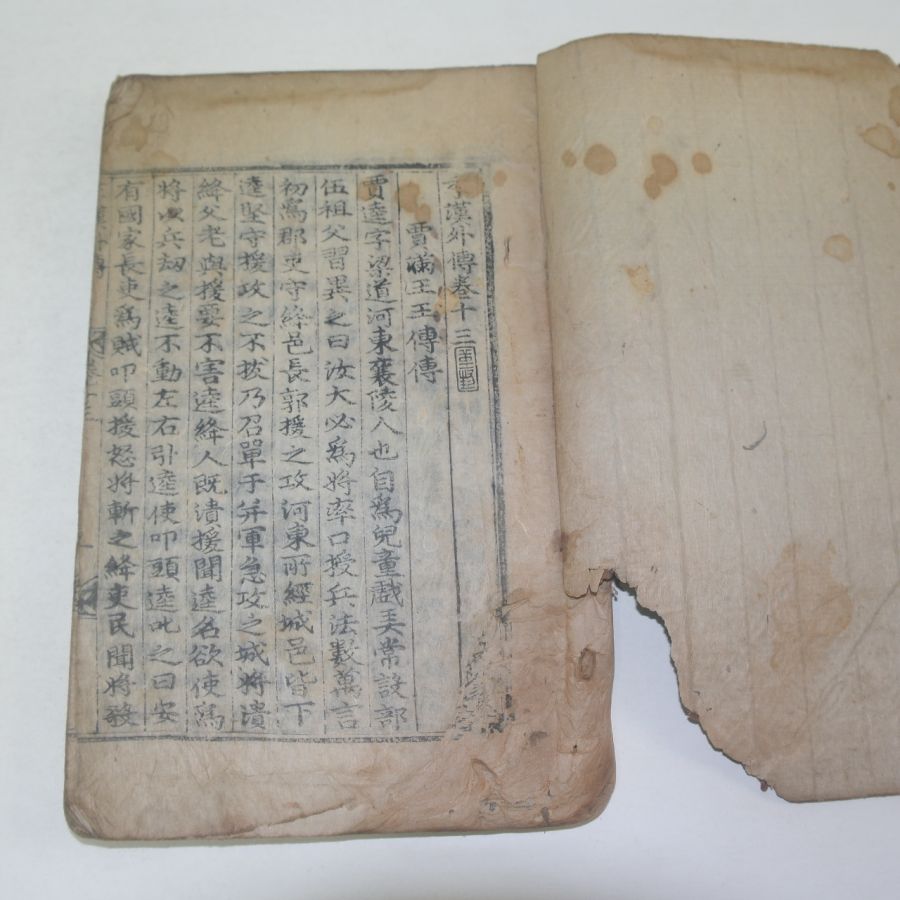 季漢外傳卷十三
賈滿王王傳傳
賈逵字梁道河東襄陵人也自爲兒童戲弄常設部
伍祖父習異之曰汝大必爲將率口授兵法數萬言
初爲郡吏守絳邑長郭援之攻河東所經城邑皆下
逵堅守援攻之不拔乃召單于幷軍急攻之城將潰
絳父老與援要不害逵絳人既潰援聞逵名欲使爲
將以兵劫之逵不動左右引逵使叩頭逵叱之曰安
有國家長吏爲賊叩頭援怒將斬之絳吏民聞將殺